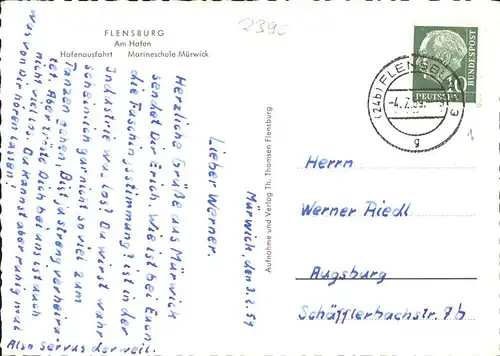 FLENSBURG
Am Hafen
Hafenausfahrt Marineschule Mürwick
2390
FLENSBURG
(24b)
-4.2.59
g
3
10
DEUTSCHE
BUNDESPOST
1
Aufnahme und Verlag Th. Thomsen Flensburg
Mürwick, den 3.2.59
Lieber Werner.
Herzliche Grüße aus Mürwick
sendet Dir Erich. Wie ist bei Euch
die Faschingsstimmung? ist in der
Industrie was los? Du wirst wahr
scheinlich garnicht so viel zum
Tanzen gehen, Bist ja streng verheira
tet. Aber tröste Dich bei uns ist auch
nicht viel los. Du kannst aber ruhig mal
was von Dir hören lassen!
Also servus derweil.
Herrn
Werner Riedl
Augsburg
Schäfflerbachstr. 7b